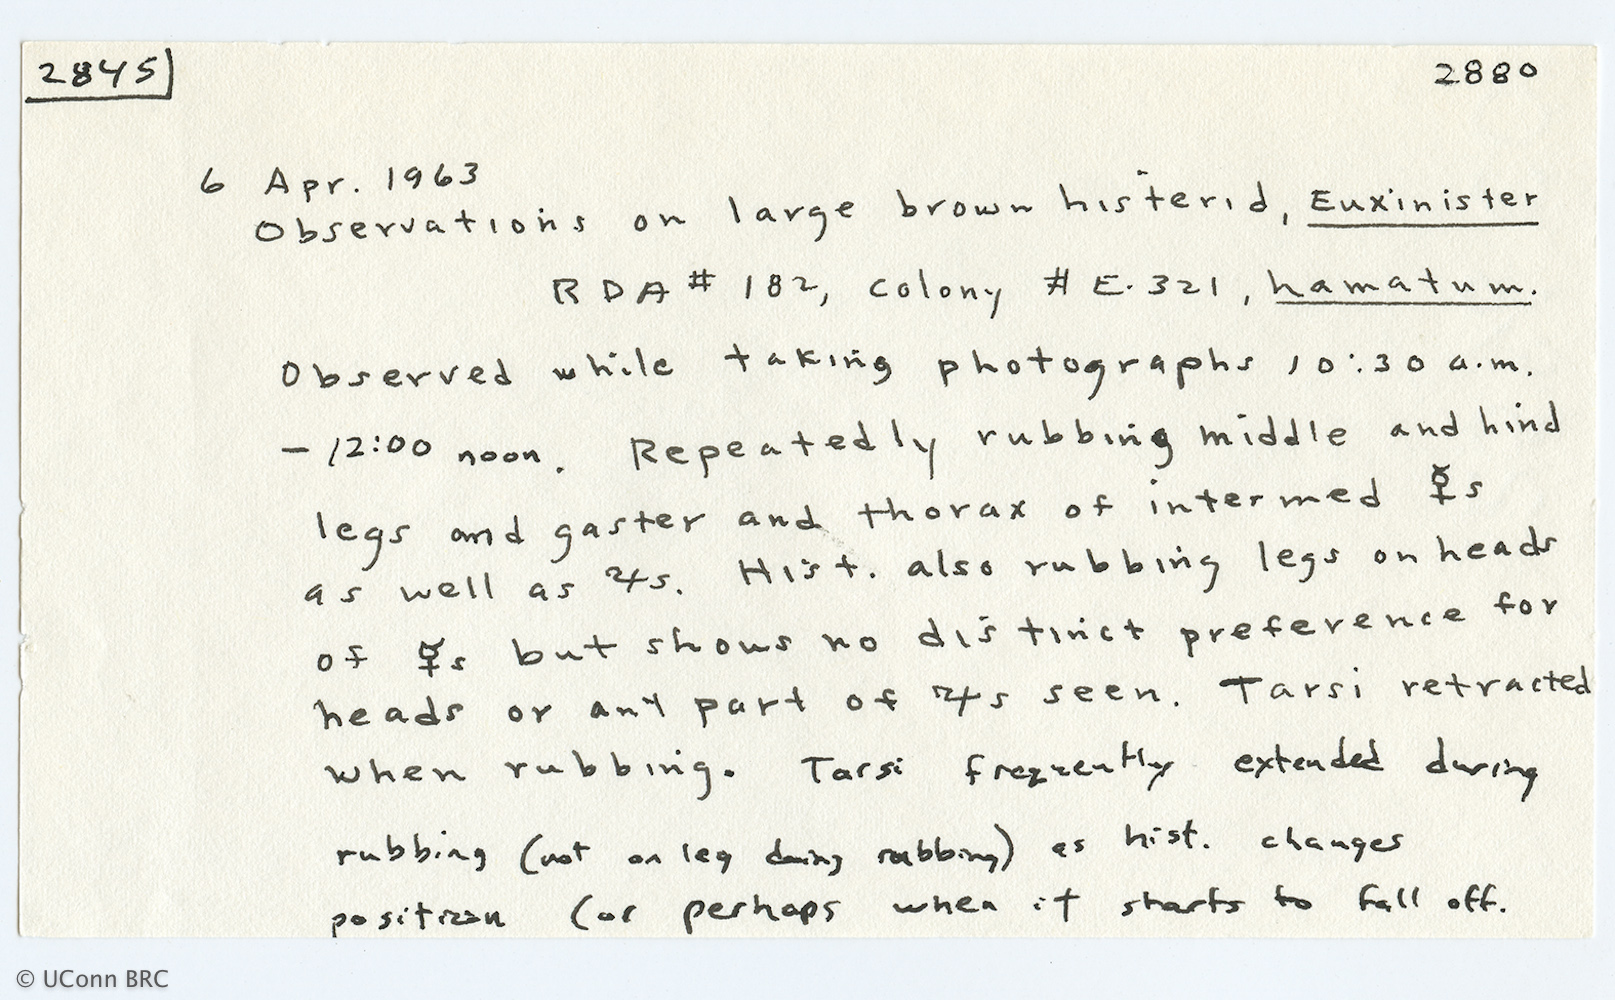 2845
2880
6 Apr. 1963
Observations on large brown histerid, Euxinister
RDA# 182, colony # E-321, hamatum.
Observed while taking photographs 10:30 a.m.
- 12:00 noon. Repeatedly rubbing middle and hind
legs and gaster and thorax of intermed ☿s
as well as ♃s. Hist. also rubbing legs on heads
of ☿s but shows no distinct preference for
heads or any part of ♃s seen. Tarsi retracted
when rubbing. Tarsi frequently extended during
rubbing (not on leg doing rubbing) as hist. changes
position (or perhaps when it starts to fall off.
© UConn BRC